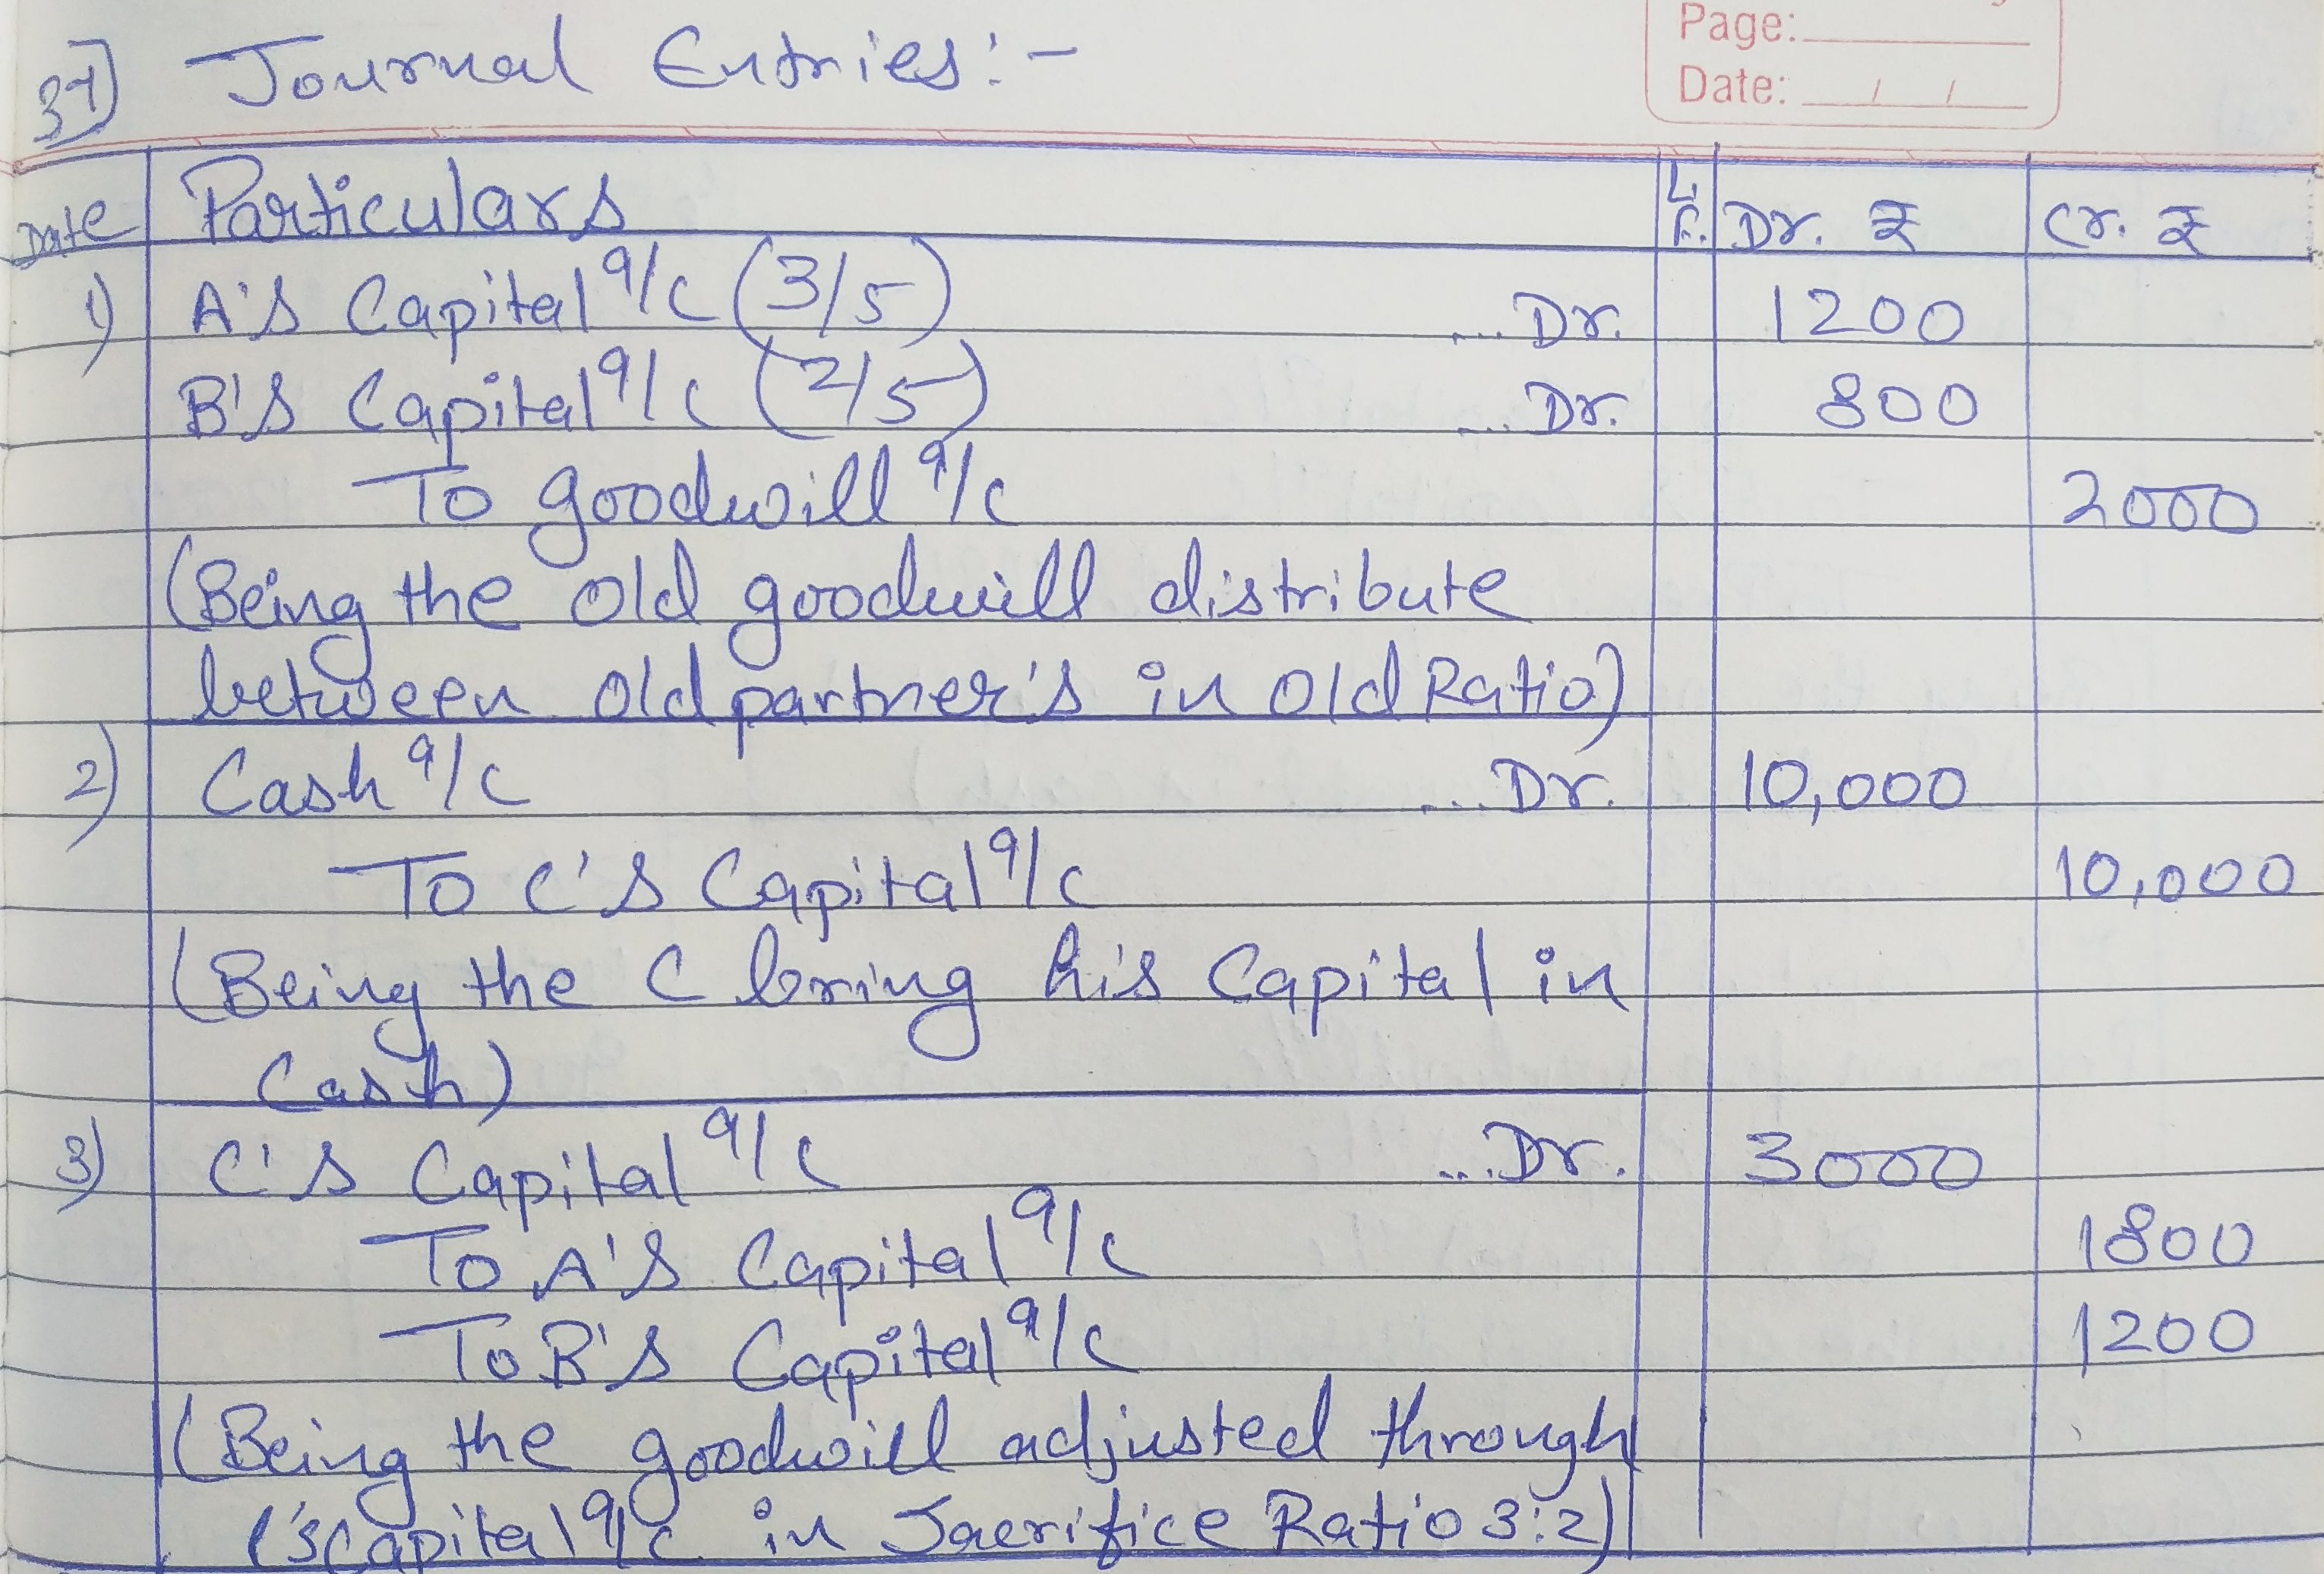 Page:
Date: / /
37] Journal Entries:-
Date Particulars L.F. Dr. ₹ Cr. ₹
1) A's Capital a/c (3/5) ... Dr. 1200
B's Capital a/c (2/5) ... Dr. 800
To goodwill a/c 2000
(Being the old goodwill distribute
between old partner's in old Ratio)
2) Cash a/c ... Dr. 10,000
To C's Capital a/c 10,000
(Being the C bring his Capital in
Cash)
3) C's Capital a/c ... Dr. 3000
To A's Capital a/c 1800
To B's Capital a/c 1200
(Being the goodwill adjusted through
C's Capital a/c in Sacrifice Ratio 3:2)